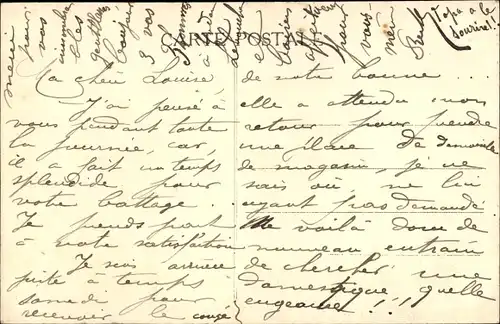 CARTE POSTALE
Ma chère Louise,
J'ai pensé à
vous pendant toute
la journée, car,
il a fait un temps
splendide pour
votre battage.
Je prends part
à votre satisfaction
Je suis arrivée
pile à temps
samedi pour
recevoir le congé
de notre bonne....
elle a attendu mon
retour pour prendre
une place de demoiselle
de magasin, je ne
sais où, ne lui
ayant pas demandé
Me voilà donc de
nouveau en train
de chercher une
domestique, quelle
engeance!!!
merci
pour
vos
les
gentilles
bonjour
à vos
à
Jean
pour
vous
merci
Papa a le
sourire!